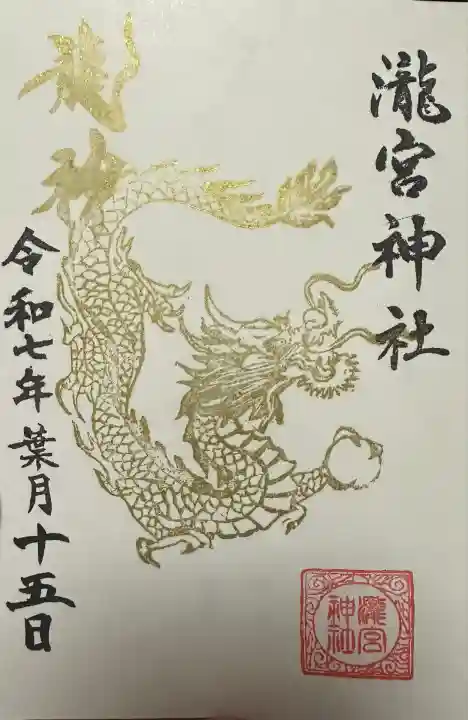 瀧宮神社
龍神
令和七年葉月十五日
瀧宮
神社